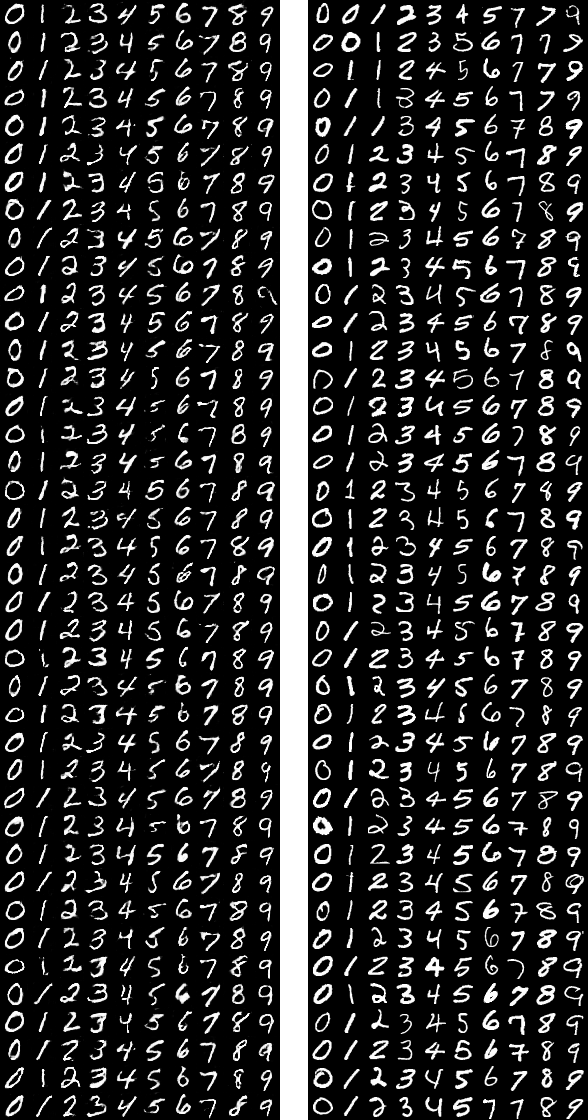 0 1 2 3 4 5 6 7 8 9 0 0 1 2 3 4 5 7 7 9
0 1 2 3 4 5 6 7 8 9 0 0 1 2 3 5 6 7 7 9
0 1 2 3 4 5 6 7 8 9 0 1 1 2 4 5 6 7 7 9
0 1 2 3 4 5 6 7 8 9 0 1 1 3 4 5 6 7 7 9
0 1 2 3 4 5 6 7 8 9 0 1 1 3 4 5 6 7 8 9
0 1 2 3 4 5 6 7 8 9 0 1 2 3 4 5 6 7 8 9
0 1 2 3 4 5 6 7 8 9 0 1 2 3 4 5 6 7 8 9
0 1 2 3 4 5 6 7 8 9 0 1 2 3 4 5 6 7 8 9
0 1 2 3 4 5 6 7 8 9 0 1 2 3 4 5 6 7 8 9
0 1 2 3 4 5 6 7 8 9 0 1 2 3 4 5 6 7 8 9
0 1 2 3 4 5 6 7 8 0 1 2 3 4 5 6 7 8 9
0 1 2 3 4 5 6 7 8 9 0 1 2 3 4 5 6 7 8 9
0 1 2 3 4 5 6 7 8 9 0 1 2 3 4 5 6 7 8 9
0 1 2 3 4 5 6 7 8 9 0 1 2 3 4 5 6 7 8 9
0 1 2 3 4 5 6 7 8 9 0 1 2 3 4 5 6 7 8 9
0 1 2 3 4 5 6 7 8 9 0 1 2 3 4 5 6 7 8 9
0 1 2 3 4 5 6 7 8 9 0 1 2 3 4 5 6 7 8 9
0 1 2 3 4 5 6 7 8 9 0 1 2 3 4 5 6 7 8 9
0 1 2 3 4 5 6 7 8 9 0 1 2 3 4 5 6 7 8 9
0 1 2 3 4 5 6 7 8 9 0 1 2 3 4 5 6 7 8 9
0 1 2 3 4 5 6 7 8 9 0 1 2 3 4 5 6 7 8 9
0 1 2 3 4 5 6 7 8 9 0 1 2 3 4 5 6 7 8 9
0 1 2 3 4 5 6 7 8 9 0 1 2 3 4 5 6 7 8 9
0 1 2 3 4 5 6 7 8 9 0 1 2 3 4 5 6 7 8 9
0 1 2 3 4 5 6 7 8 9 0 1 2 3 4 5 6 7 8 9
0 1 2 3 4 5 6 7 8 9 0 1 2 3 4 5 6 7 8 9
0 1 2 3 4 5 6 7 8 9 0 1 2 3 4 5 6 7 8 9
0 1 2 3 4 5 6 7 8 9 0 1 2 3 4 5 6 7 8 9
0 1 2 3 4 5 6 7 8 9 0 1 2 3 4 5 6 7 8 9
0 1 2 3 4 5 6 7 8 9 0 1 2 3 4 5 6 7 8 9
0 1 2 3 4 5 6 7 8 9 0 1 2 3 4 5 6 7 8 9
0 1 2 3 4 5 6 7 8 9 0 1 2 3 4 5 6 7 8 9
0 1 2 3 4 5 6 7 8 9 0 1 2 3 4 5 6 7 8 9
0 1 2 3 4 5 6 7 8 9 0 1 2 3 4 5 6 7 8 9
0 1 2 3 4 5 6 7 8 9 0 1 2 3 4 5 6 7 8 9
0 1 2 3 4 5 6 7 8 9 0 1 2 3 4 5 6 7 8 9
0 1 2 3 4 5 6 7 8 9 0 1 2 3 4 5 6 7 8 9
0 1 2 3 4 5 6 7 8 9 0 1 2 3 4 5 6 7 8 9
0 1 2 3 4 5 6 7 8 9 0 1 2 3 4 5 6 7 8 9
0 1 2 3 4 5 6 7 8 9 0 1 2 3 4 5 7 7 8 9